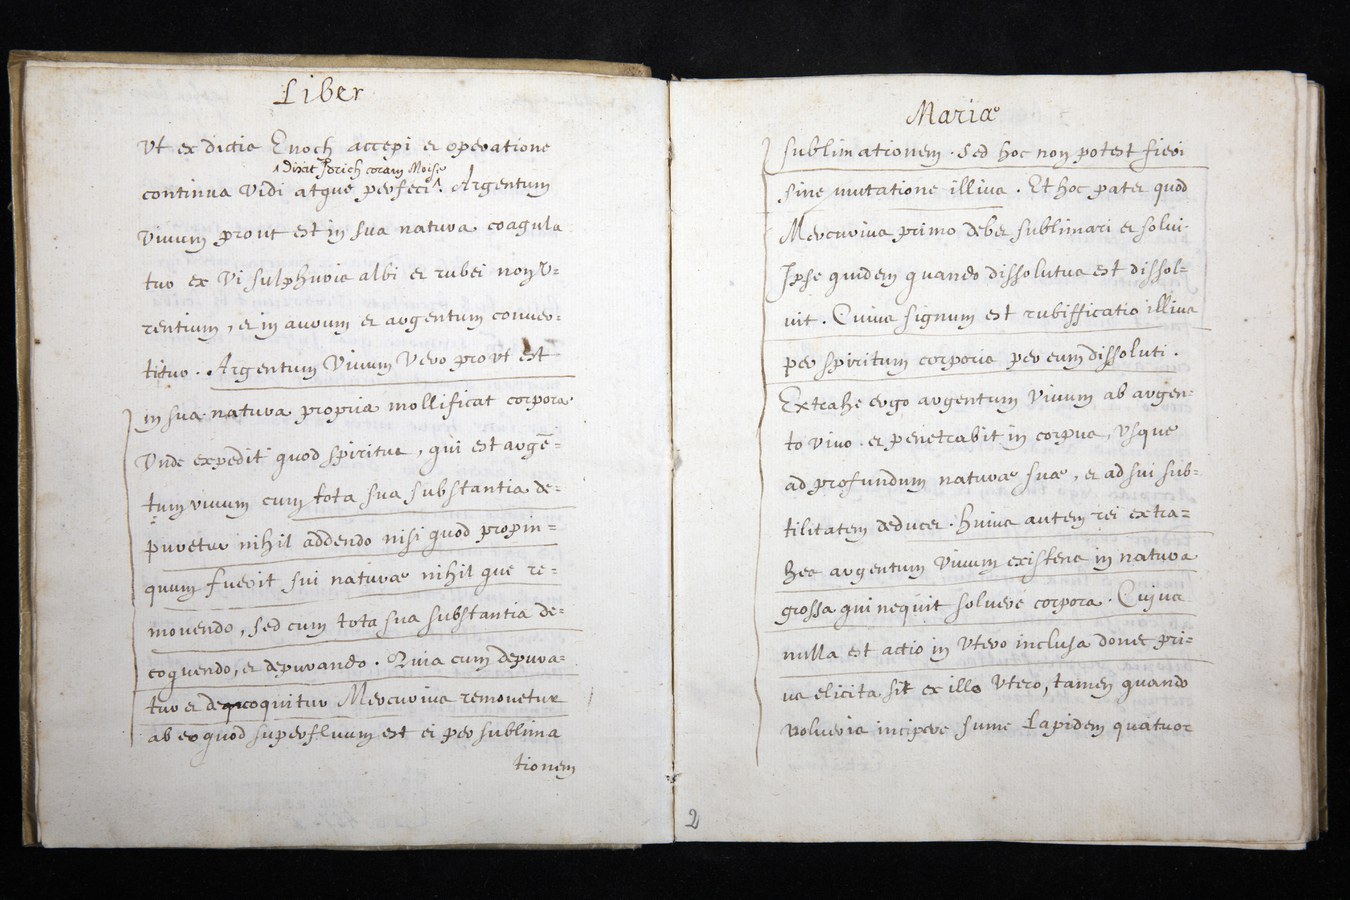 Liber
Vt ex dictis Enoch accepi et operatione
dixit Jorich coram Moise
continua vidi atque perfeci. Argentum
vivum prout est in sua natura coagula
tur ex vi sulphuris albi et rubei non v=
rentium, et in aurum et argentum conver=
titur. Argentum vivum vero prout est
in sua natura propria mollificat corpora
Vnde expedit quod spiritus, qui est argē=
tum vivum cum tota sua substantia de=
puretur nihil addendo nisi quod propin=
quum fuerit sui naturæ nihil que re=
movendo, sed cum tota sua substantia de=
coquendo, et depurando. Quia cum depura=
tur et decoquitur Mercurius removetur
ab eo quod superfluum est et per sublima
tionem
Mariæ
sublimationem. Sed hoc non potest fieri
sine mutatione illius. Et hoc pater quod
Mercurius primo debet sublimari et solui.
Ipse quidem quando dissolutus est dissol=
uit. Cuius signum est rubifficatio illius
per spiritum corporis per eum dissoluti.
Extrahe ergo argentum vivum ab argen=
to vivo. et penetrabit in corpus, vsque
ad profundum naturæ suæ, et ad sui sub=
tilitatem deducet. Huius autem rei extra=
hes argentum vivum existens in natura
grossa qui nequit solvere corpora. Cujus
nulla est actio in vtero inclusa donec pri=
us elicita sit ex illo vtero, tamen quando
volueris incipere sume Lapidem quatuor
2